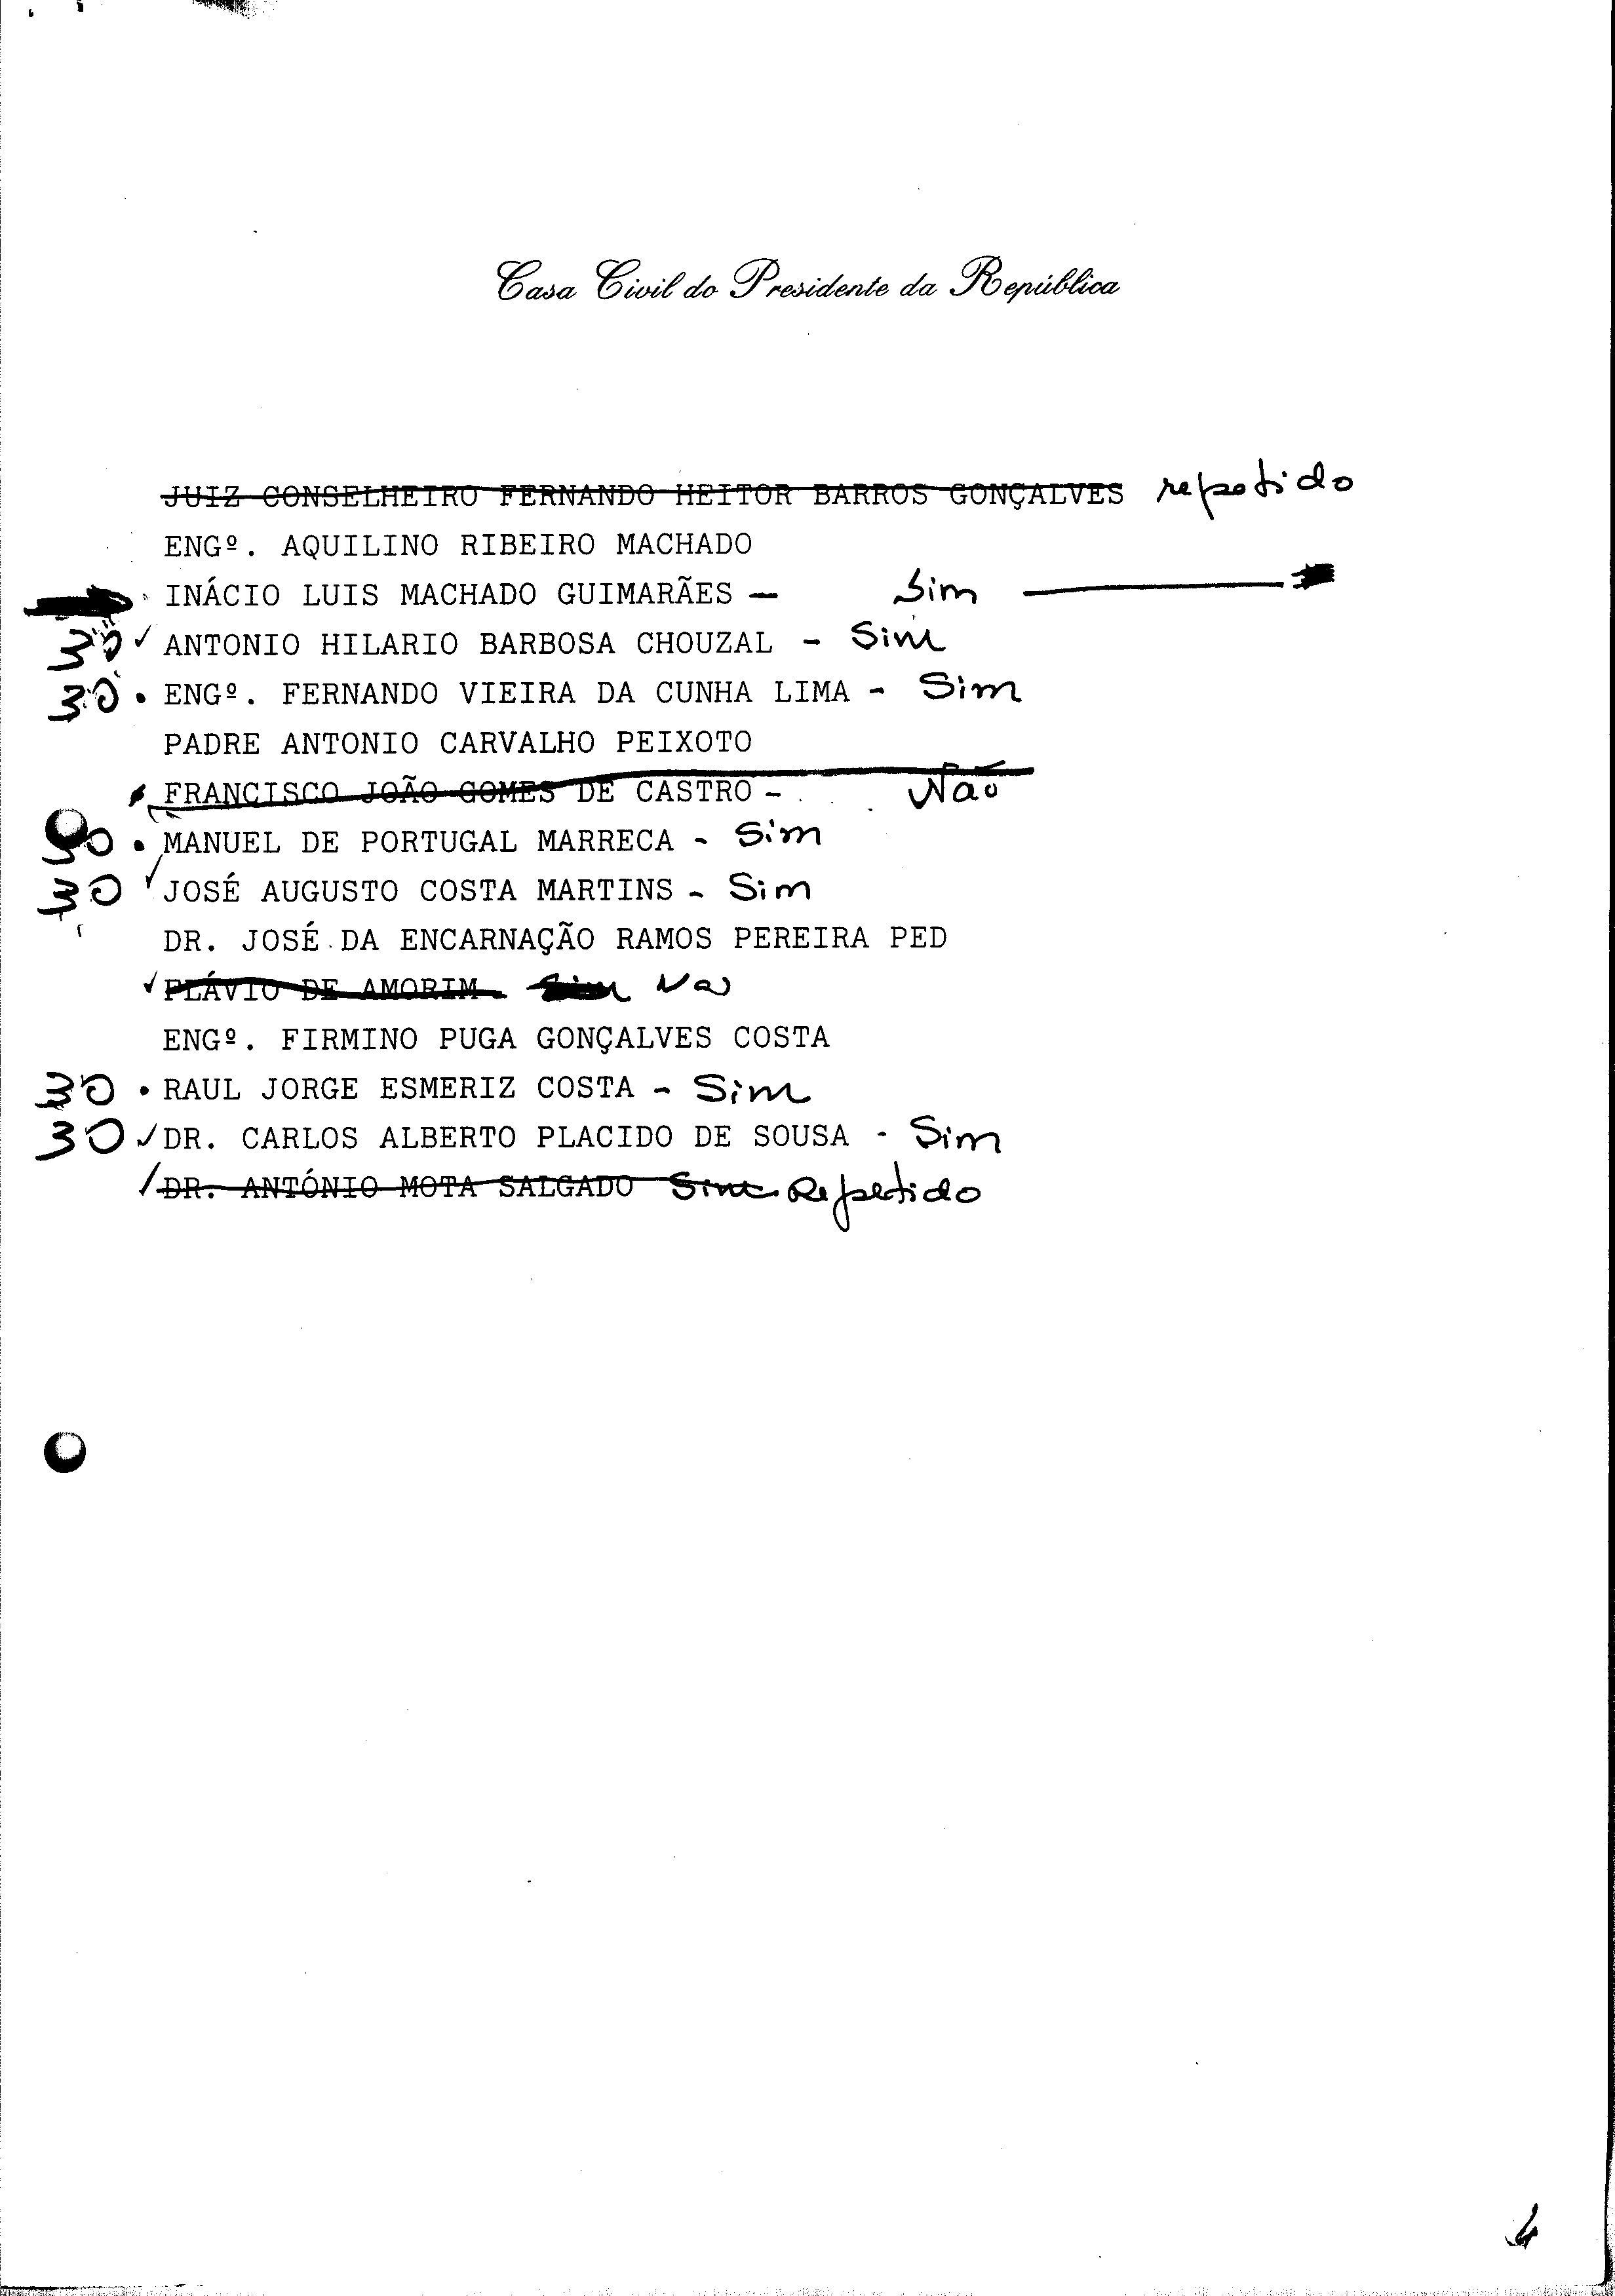 Casa Civil do Presidente da República
JUIZ CONSELHEIRO FERNANDO HEITOR BARROS GONÇALVES repetido
ENGº. AQUILINO RIBEIRO MACHADO
INÁCIO LUIS MACHADO GUIMARÃES — Sim
30 ✓ ANTONIO HILARIO BARBOSA CHOUZAL - Sim
30 • ENGº. FERNANDO VIEIRA DA CUNHA LIMA - Sim
PADRE ANTONIO CARVALHO PEIXOTO
FRANCISCO JOÃO GOMES DE CASTRO - Não
30 • MANUEL DE PORTUGAL MARRECA - Sim
30 ✓ JOSÉ AUGUSTO COSTA MARTINS - Sim
DR. JOSÉ DA ENCARNAÇÃO RAMOS PEREIRA PED
✓ FLÁVIO DE AMORIM Sim
ENGº. FIRMINO PUGA GONÇALVES COSTA
30 • RAUL JORGE ESMERIZ COSTA - Sim
30 ✓ DR. CARLOS ALBERTO PLACIDO DE SOUSA - Sim
✓ DR. ANTÓNIO MOTA SALGADO Sim Repetido